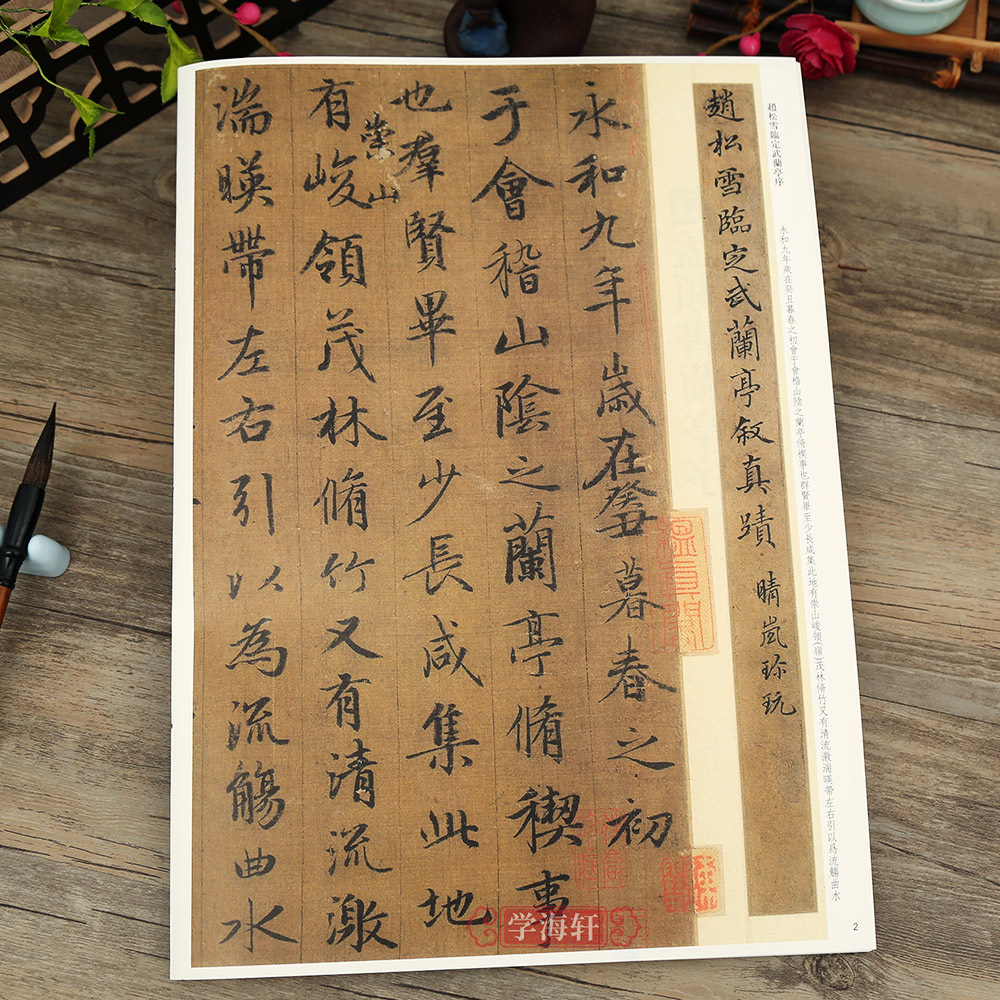 趙松雪臨定武蘭亭序
永和九年歲在癸丑暮春之初會于會稽山陰之蘭亭脩禊事也群賢畢至少長咸集此地有崇山峻領(嶺)茂林脩竹又有清流激湍暎帶左右引以爲流觴曲水
趙松雪臨定武蘭亭敘真蹟 晴嵐珎玩
永和九年歲在癸丑暮春之初會
于會稽山陰之蘭亭脩稧事
也羣賢畢至少長咸集此地
有崇山峻領茂林脩竹又有清流激
湍暎帶左右引以為流觴曲水
学海轩
2